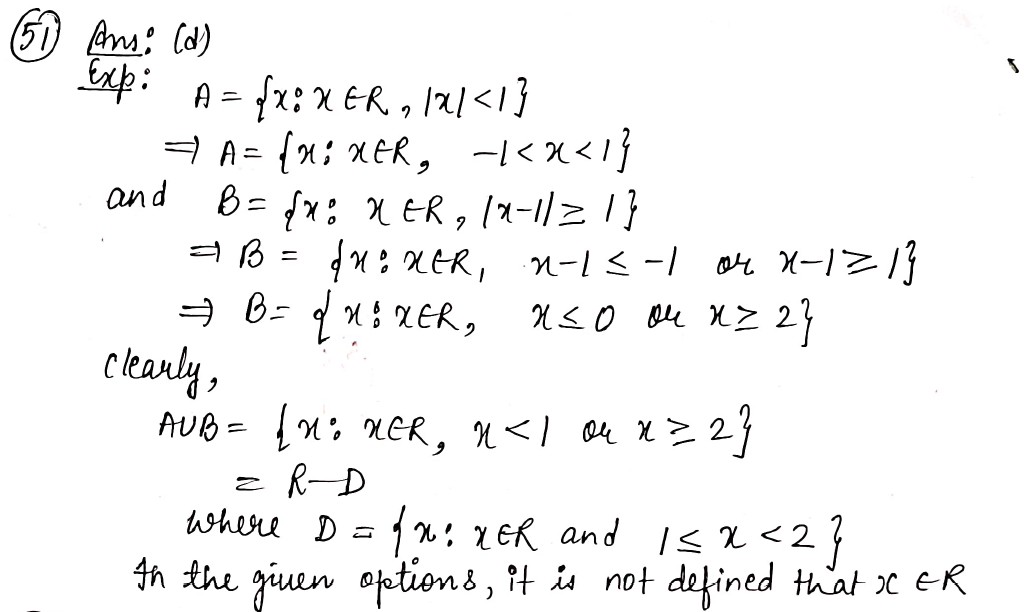 51 Ans: (d)
Exp:
A = {x: x ∈ R, |x| < 1}
⇒ A = {x: x ∈ R, -1 < x < 1}
and B = {x: x ∈ R, |x-1| ≥ 1}
⇒ B = {x: x ∈ R, x-1 ≤ -1 or x-1 ≥ 1}
⇒ B = {x: x ∈ R, x ≤ 0 or x ≥ 2}
Clearly,
A∪B = {x: x ∈ R, x < 1 or x ≥ 2}
= R-D
where D = {x: x ∈ R and 1 ≤ x < 2}
In the given options, it is not defined that x ∈ R